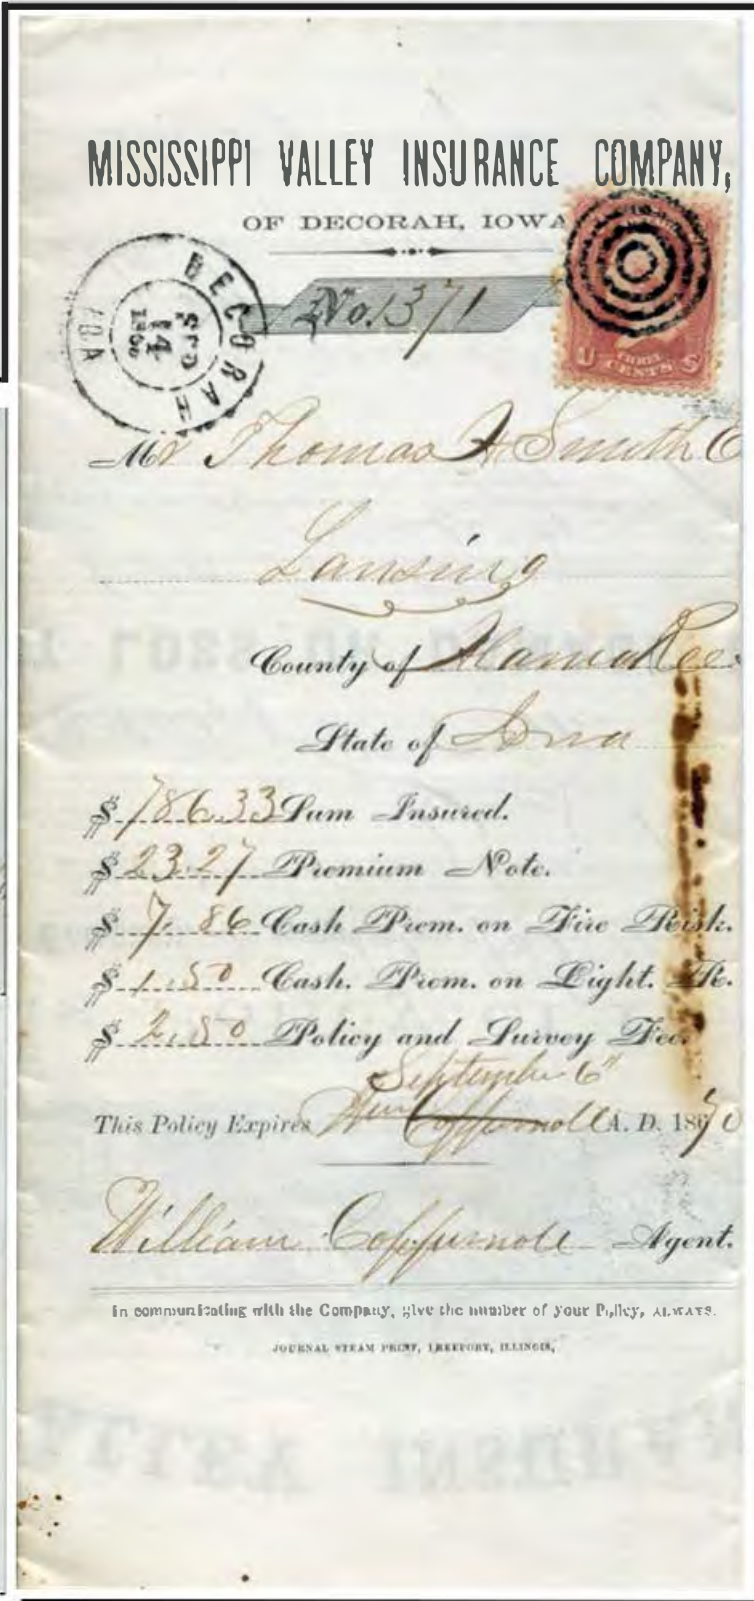 MISSISSIPPI VALLEY INSURANCE COMPANY,
OF DECORAH, IOWA
No. 1371
DECORAH IOA
SEP 14 1866
THREE
U CENTS S
Mr Thomas H Smith
Lansing
County of Alamakee
State of Iowa
$ 786.33 Sum Insured.
$ 23.27 Premium Note.
$ 7.86 Cash Prem. on Fire Risk.
$ 1.50 Cash. Prem. on Light. R.
$ 2.50 Policy and Survey Fee.
September 6"
This Policy Expires Wm Coppernoll A. D. 1870
William Coppernoll Agent.
In communicating with the Company, give the number of your Policy, ALWAYS.
JOURNAL STEAM PRINT, FREEPORT, ILLINOIS,